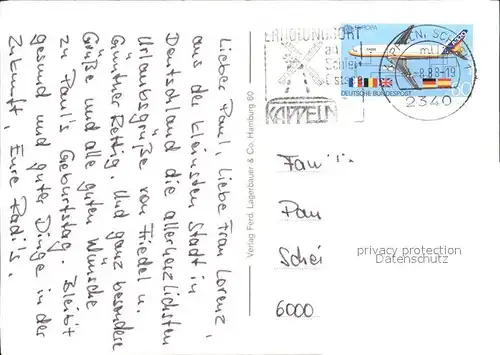 Lieber Paul, liebe Frau Lorenz,
aus der kleinsten Stadt in
Deutschland die allerherzlichsten
Urlaubsgrüße von Friedel u.
Günther Rettig. Und ganz besondere
Grüße und alle guten Wünsche
zu Paul's Geburtstag. Bleibt
gesund und guter Dinge in der
Zukunft, Eure Radi's.
Verlag Ferd. Lagerbauer & Co. Hamburg 60
ERHOLUNGSORT
an
Schlei
Ostsee
KAPPELN
EUROPA
60
DEUTSCHE BUNDESPOST
KAPPELN, SCHLEI
-8.8.88-19
2340
Fam
Pau
Schei
6000
privacy protection
Datenschutz